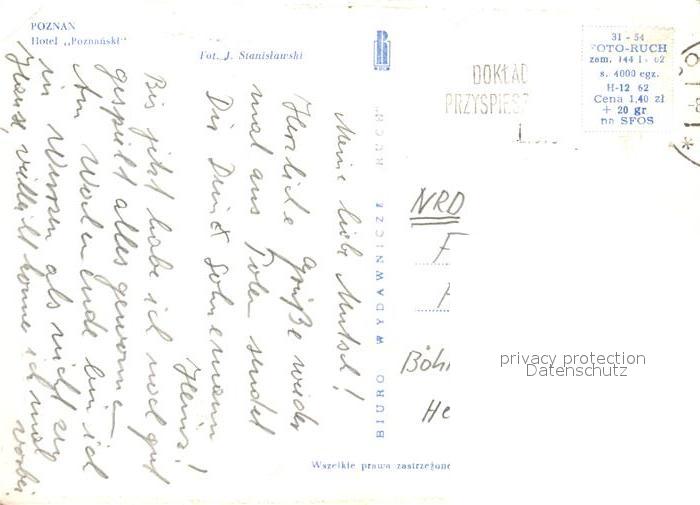 POZNAŃ
Hotel „Poznański"
Fot. J. Stanisławski
31 - 54
FOTO-RUCH
zam. 144 I . 62
s. 4000 egz.
H-12 62
Cena 1,40 zł
+ 20 gr
na SFOS
DOKŁAD
PRZYSPIESZ
BIURO WYDAWNICZE RUCH
Meine liebe Mutsch!
Herzliche Grüße wieder
mal aus Polen sendet
Dir Dein Sohnemann
Heinz!
Bis jetzt habe ich noch gut
gespielt alles gewonnen
Am Wochenende bin ich
in Warschau als nicht zu
Hause, vielleicht komme ich mal
vorbei
NRD
F
Böh
He
privacy protection
Datenschutz
Wszelkie prawa zastrzeżone